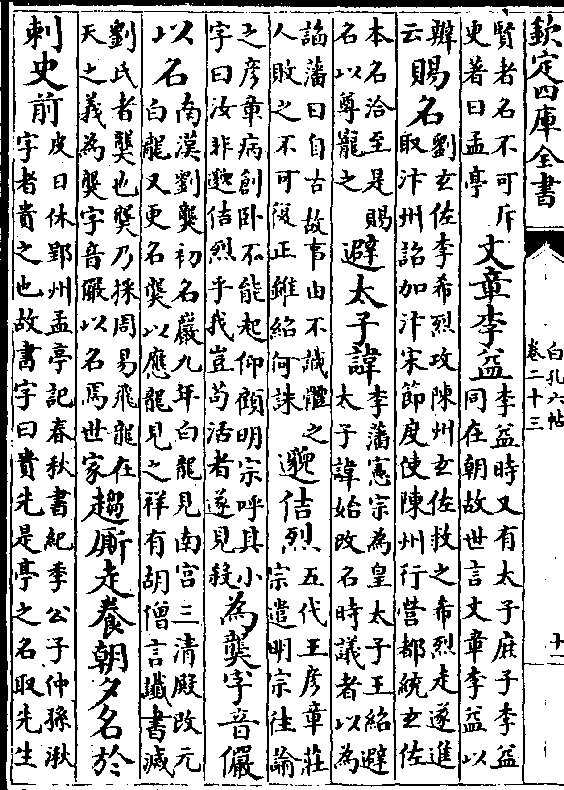 欽定四庫全書
白孔六帖
卷二十三
十一
賢者名不可斥
更著曰孟亭
文章李益
李益時又有太子庶子李益
同在朝故世言文章李益以
辨
云
賜名
劉玄佐李希烈攻陳州玄佐救之希烈走遂進
取汴州詔加汴宋節度使陳州行營都統玄佐
本名洽至是賜
名以尊寵之
避太子諱
李藩憲宗為皇太子王紹避
太子諱始改名時議者以為
諂藩曰自古故事由不識體之
人敗之不可復正雖紹何誅
邈佶烈
五代王彦章莊
宗遣明宗往諭
之彦章病創卧不能起仰顧明宗呼其小
字曰汝非邈佶烈乎我豈苟活者遂見殺
為龑字音儼
以名
南漢劉龑初名巖九年白龍見南宮三清殿改元
白龍又更名龑以應龍見之祥有胡僧言䜟書滅
劉氏者龑也龑乃採周易飛龍在
天之義為龑字音儼以名焉世家
趨厮走養朝夕名於
刺史前
皮日休郢州孟亭記春秋書紀季公子仲孫湫
字者貴之也故書字曰貴先是亭之名取先生